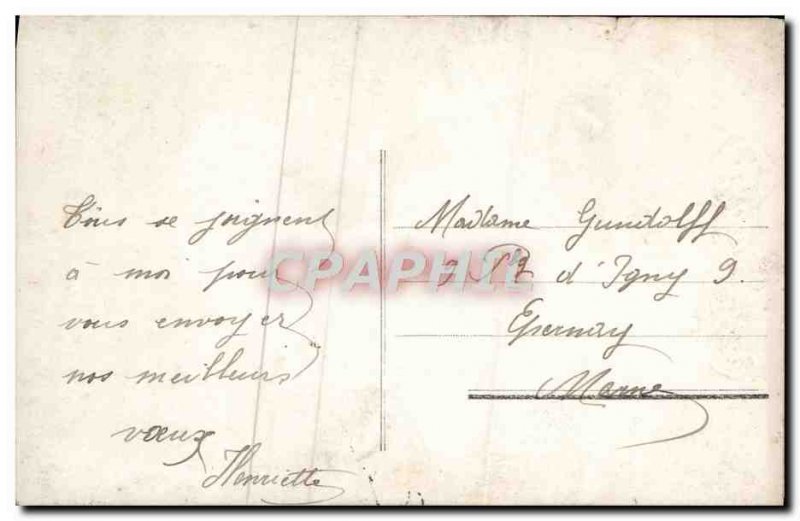 Tous se joignent
à moi pour
vous envoyer
nos meilleurs
vœux
Henriette
Madame Gundolff
d'Igny 9.
Epernay
Marne
CPARAMA